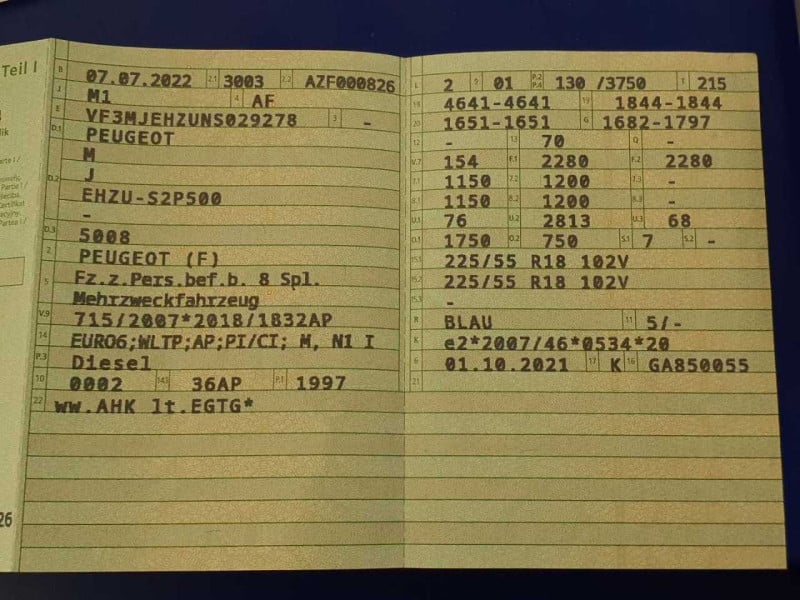 Teil I
B 07.07.2022 2.1 3003 2.2 AZF000826
J M1 4 AF
E VF3MJEHZUNS029278 3 -
D.1 PEUGEOT
M
D.2 J
EHZU-S2P500
-
D.3 5008
2 PEUGEOT (F)
5 Fz.z.Pers.bef.b. 8 Spl.
Mehrzweckfahrzeug
V.9 715/2007*2018/1832AP
14 EURO6;WLTP;AP;PI/CI; M, N1 I
P.3 Diesel
10 0002 14.1 36AP P.1 1997
22 ww.AHK lt.EGTG*
26
L 2 9 01 P.2 P.4 130 /3750 T 215
18 4641-4641 19 1844-1844
20 1651-1651 G 1682-1797
12 - 13 70 Q -
V.7 154 F.1 2280 F.2 2280
7.1 1150 7.2 1200 7.3 -
8.1 1150 8.2 1200 8.3 -
U.1 76 U.2 2813 U.3 68
O.1 1750 O.2 750 S.1 7 S.2 -
15.1 225/55 R18 102V
15.2 225/55 R18 102V
15.3 -
R BLAU 11 5/-
K e2*2007/46*0534*20
6 01.10.2021 17 K 16 GA850055
21